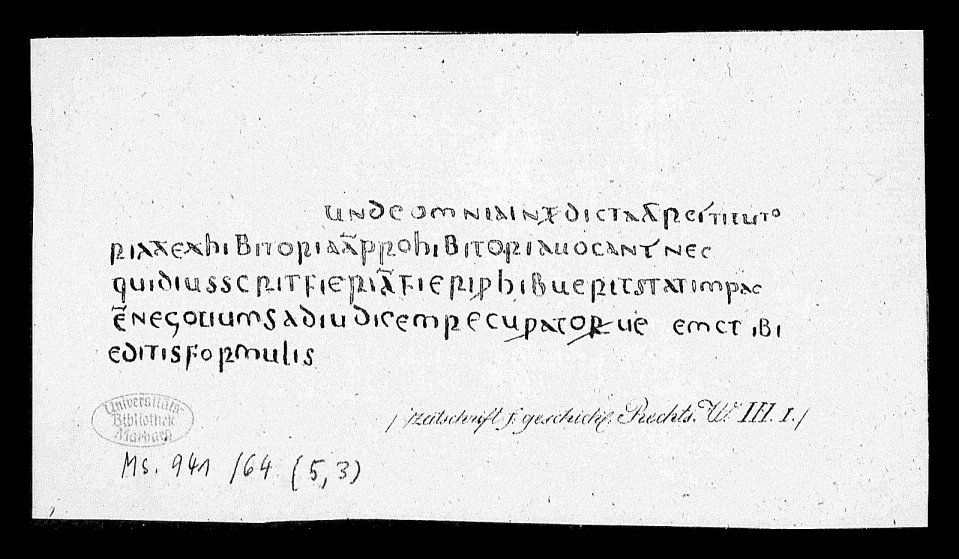 undeomniaintdictaāресtituto
riaāexhibitoriaāprohibitoriauocantr nec
quidiusscritfieriāfieriphibueritstatimpac
ēnegotiumsadiudicemrecupatorue emctibi
editisformulis
/Zeitschrift f. geschichtl. Rechts. W. III. 1./
Universitäts-
Bibliothek
Marburg
Ms. 941 /64 (5,3)